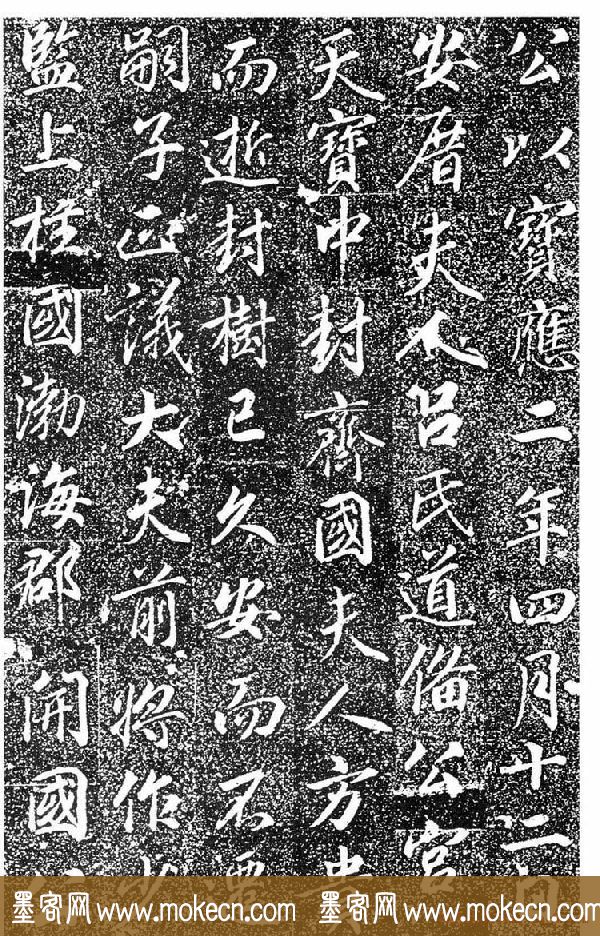 公以寶應二年四月十二日
安厝夫人呂氏道備公宮
天寶中封齊國夫人方貴
而逝封樹已久安而不遷
嗣子正議大夫前將作少
監上柱國渤海郡開國公
墨客网 www.mokecn.com 墨客网 www.mokecn.com